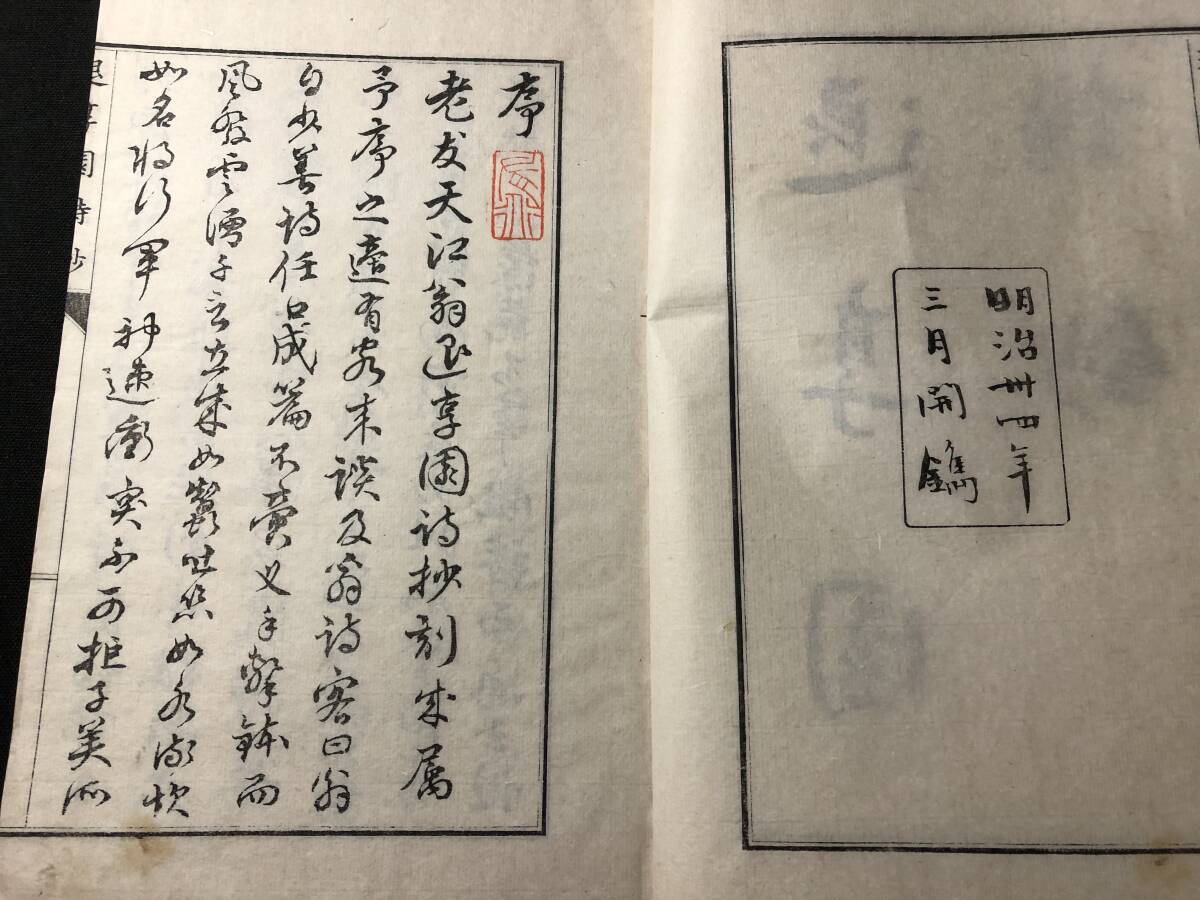 明治卅四年
三月開鐫
序
老友天江翁退享園詩抄刻成属
予序之適有客来談及翁詩客曰翁
自少善詩任口成篇不費叉手撃鉢而
風發雲湧千言立成如蠶吐絲如水
如名将行軍神速衝突不可拒子美所
退享園詩抄